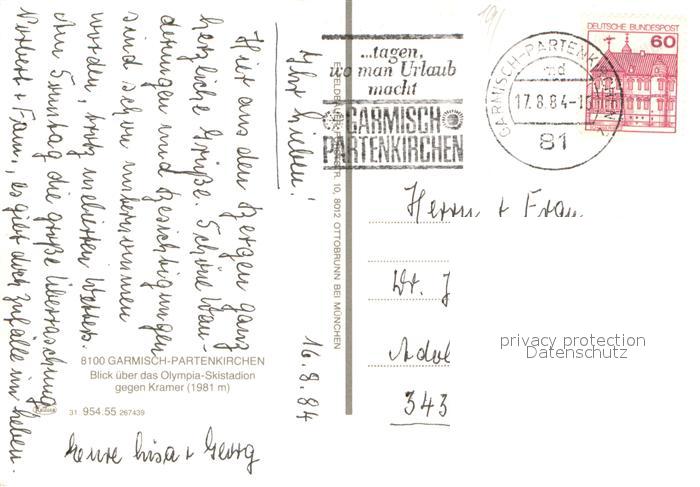 16.8.84
Ihr Lieben!
Hier aus den Bergen ganz
herzliche Grüße. Schöne Wan-
derungen und Besichtigungen
sind schon unternommen
worden, trotz nebligen Wetters.
Am Sonntag die große Überraschung
Norbert + Fam., es gibt doch Zufälle im Leben.
Eure Lisa + Georg
8100 GARMISCH-PARTENKIRCHEN
Blick über das Olympia-Skistadion
gegen Kramer (1981 m)
31 954.55 267439
10, 8012 OTTOBRUNN BEI MÜNCHEN
...tagen,
wo man Urlaub
macht
GARMISCH
PARTENKIRCHEN
GARMISCH-PARTENKIRCHEN
md
17.8.84-10
81
DEUTSCHE BUNDESPOST
60
Herrn + Frau
Dr. J
Adol
343
privacy protection
Datenschutz